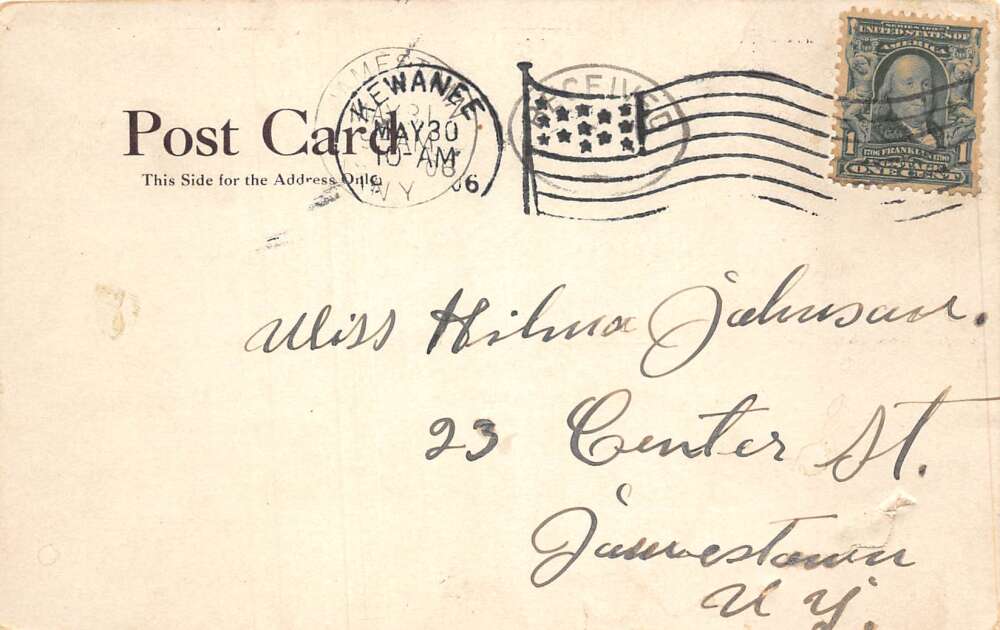 SERIES 1902
UNITED STATES OF
AMERICA
1706 FRANKLIN 1790
1 POSTAGE 1
ONE CENT
KEWANEE
MAY 30
10-AM
06
RECEIVED
N.Y.
Post Card
This Side for the Address Only
Miss Hilma Johnson.
23 Center St.
Jamestown
N Y.